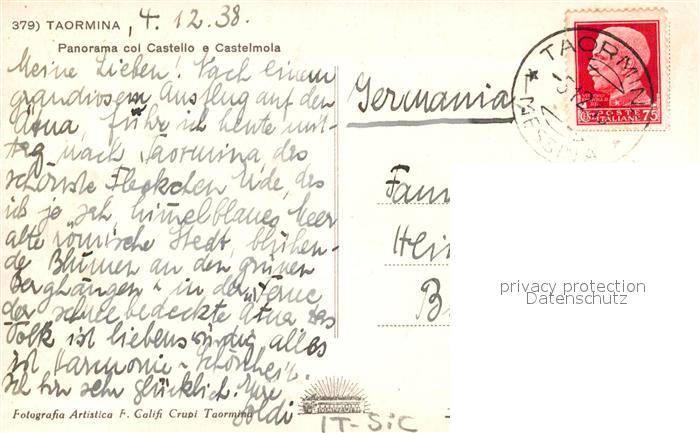 379) TAORMINA, 4. 12. 38.
Panorama col Castello e Castelmola
Meine Lieben! Nach einem
grandiosem Ausflug auf den
Ätna führ ich heute mit-
tag nach Taormina des
schönste Fleckchen Erde, des
ich je sah, himmelblaues Meer
alte römische Stadt, blühen-
de Blumen an den grünen
Berghängen u in der Ferne
der schneebedeckte Ätna das
Volk ist liebenswürdig alles
ist Harmonie u. Schönheit.
Ich bin sehr glücklich. Eure
Poldi
Germania
Fam
Hei
B
TAORMINA
MESSINA
POSTE
ITALIANE 75
privacy protection
Datenschutz
Fotografia Artistica F. Califi Crupi Taormina
IT-SiC